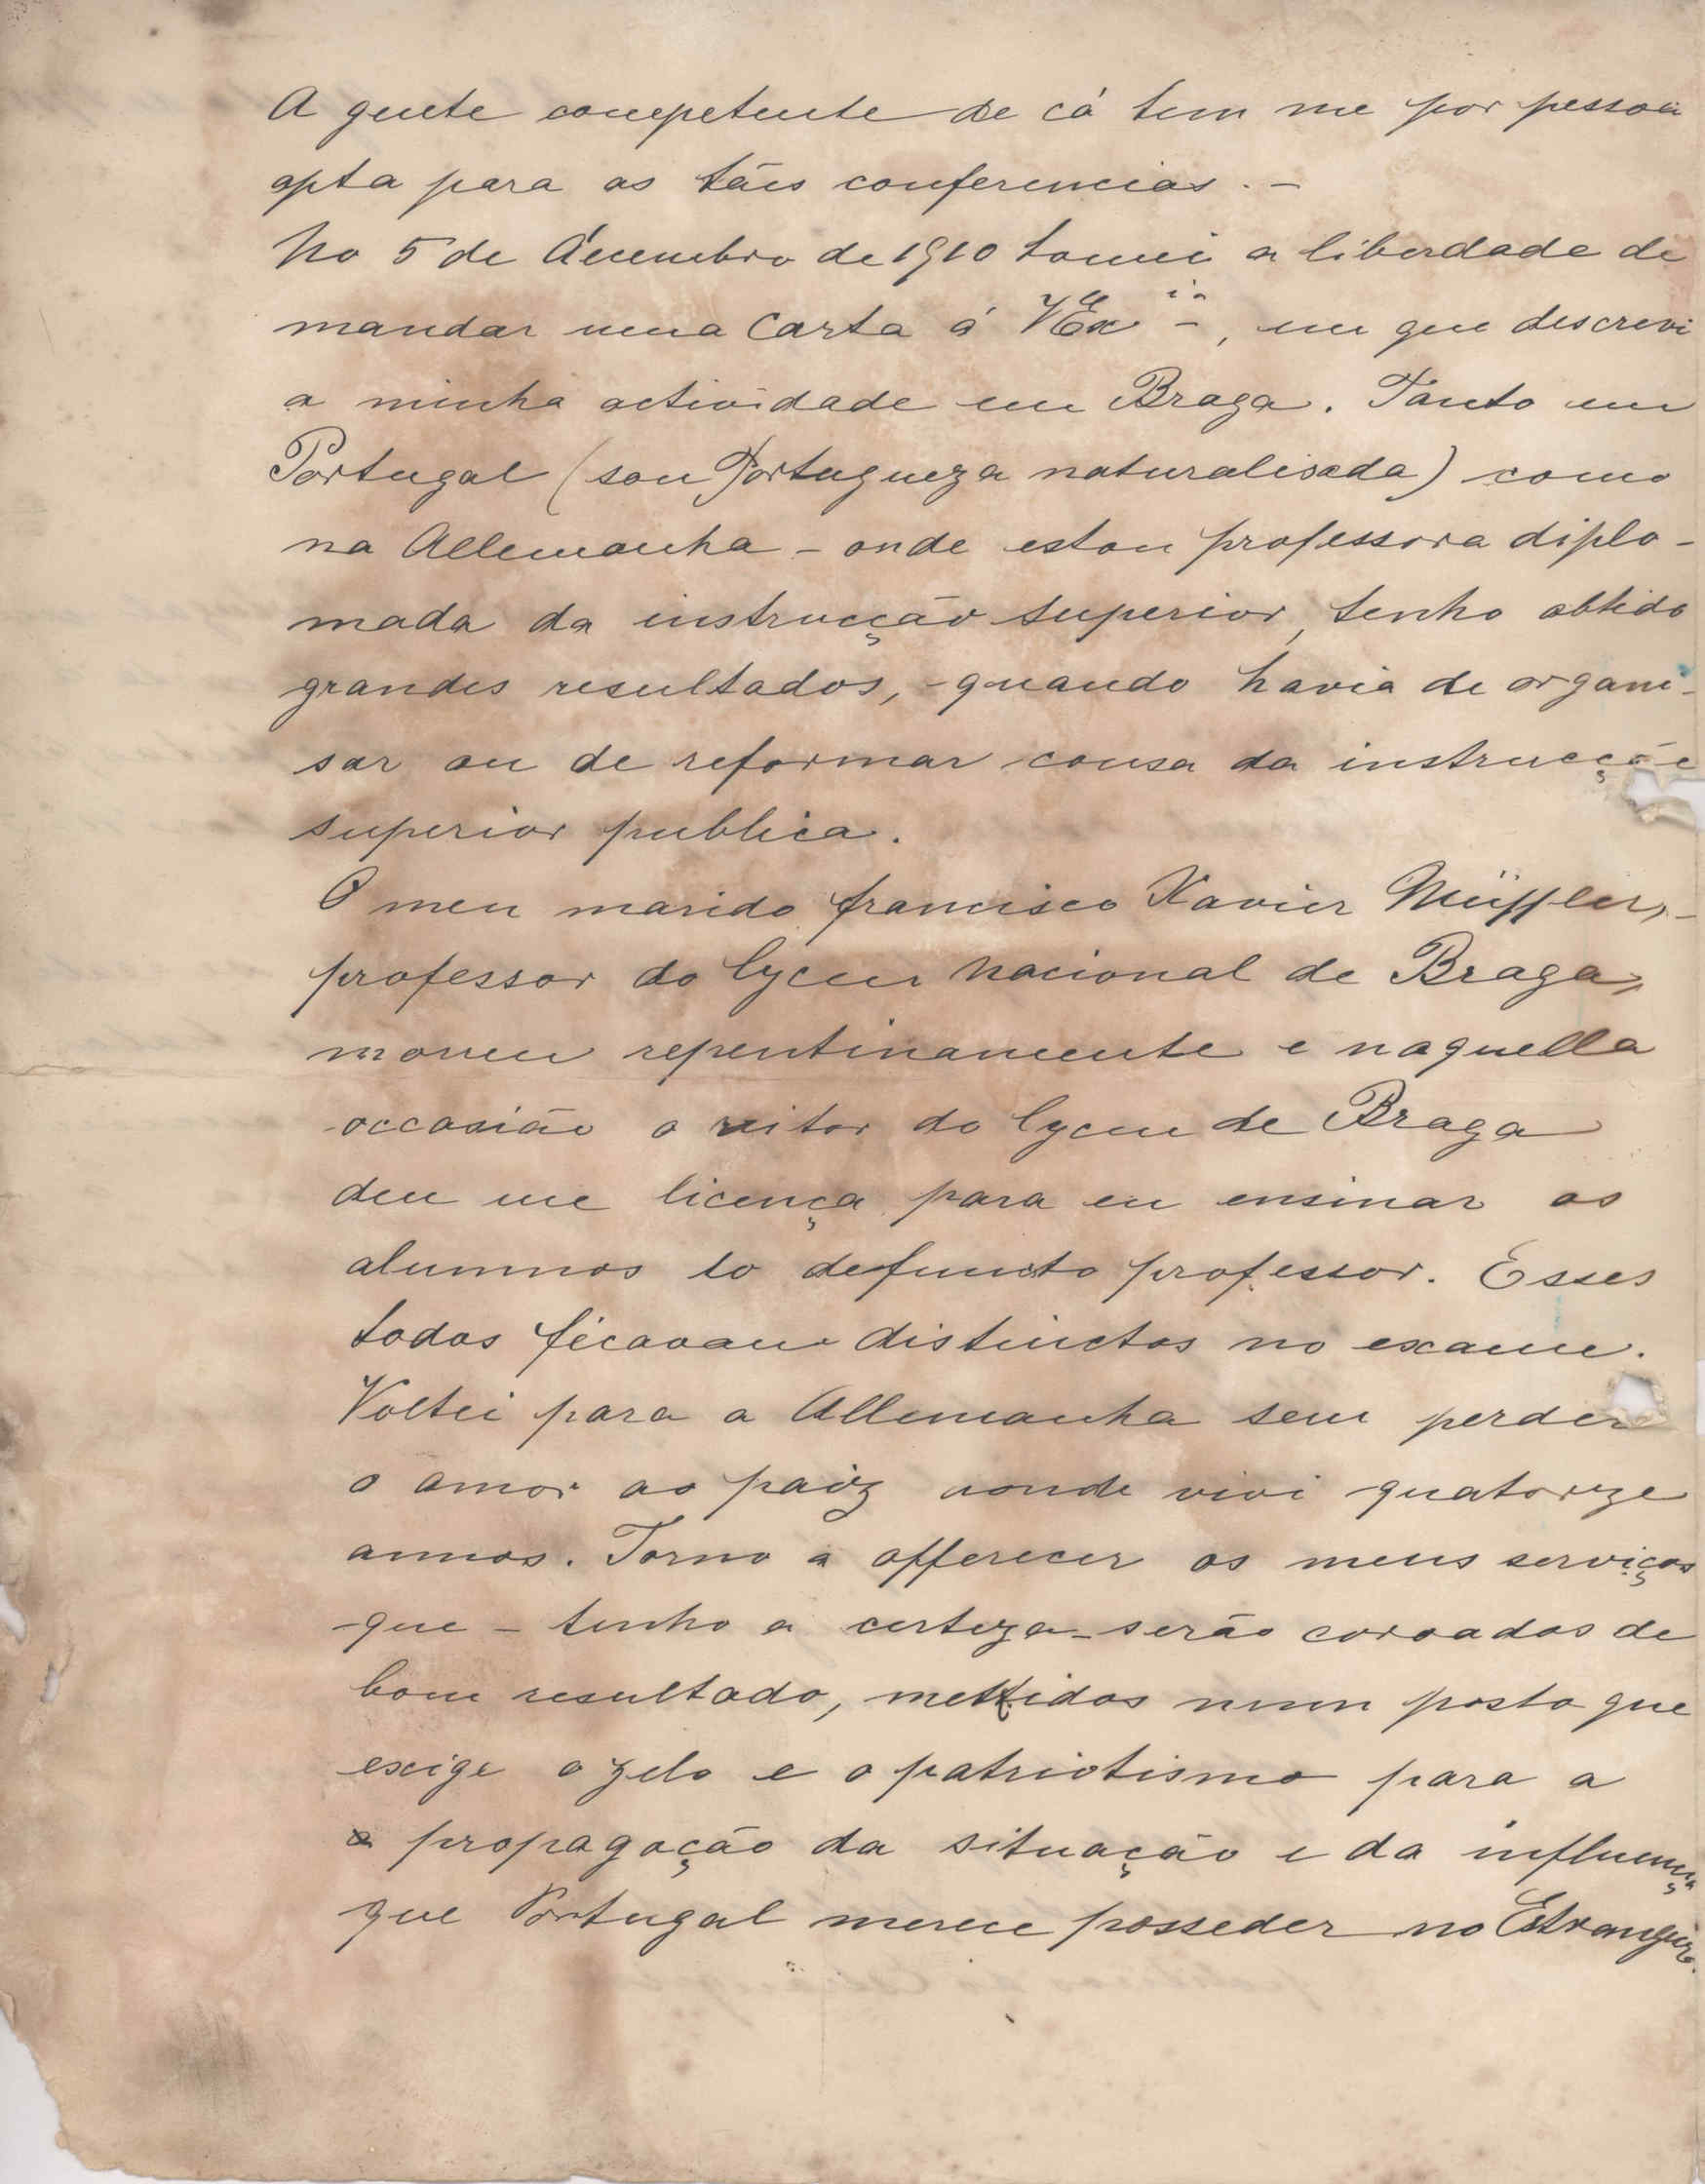 A gente competente de cá tem me por pessoa
apta para as tães conferencias. –
No 5 de Decembro de 1910 tomei a liberdade de
mandar uma Carta á VExcia –, em que descrevi
a minha actividade em Braga. Tanto em
Portugal (sou Portugueza naturalisada) como
na Allemanha – onde estou professora diplo-
mada da instrucção superior, tenho obtido
grandes resultados, – quando havia de organi-
sar ou de reformar cousa da instrucção
superior publica.
O meu marido francisco Xavier Müffler, –
professor do lyceu nacional de Braga,
morreu repentinamente e naquella
occasião o reitor do lyceu de Braga
deu me licença para eu ensinar os
alumnos do defuncto professor. Esses
todos ficavam distinctos no exame.
Voltei para a Allemanha sem perder
o amor ao paiz aonde vivi quatorze
annos. Torno a offerecer os meus serviços
que – tenho a certeza – serão coroados de
bom resultado, mettidos num posto que
exige o zelo e o patriotismo para a
propagação da situação e da influença
que Portugal merece posseder no Estrangeiro.